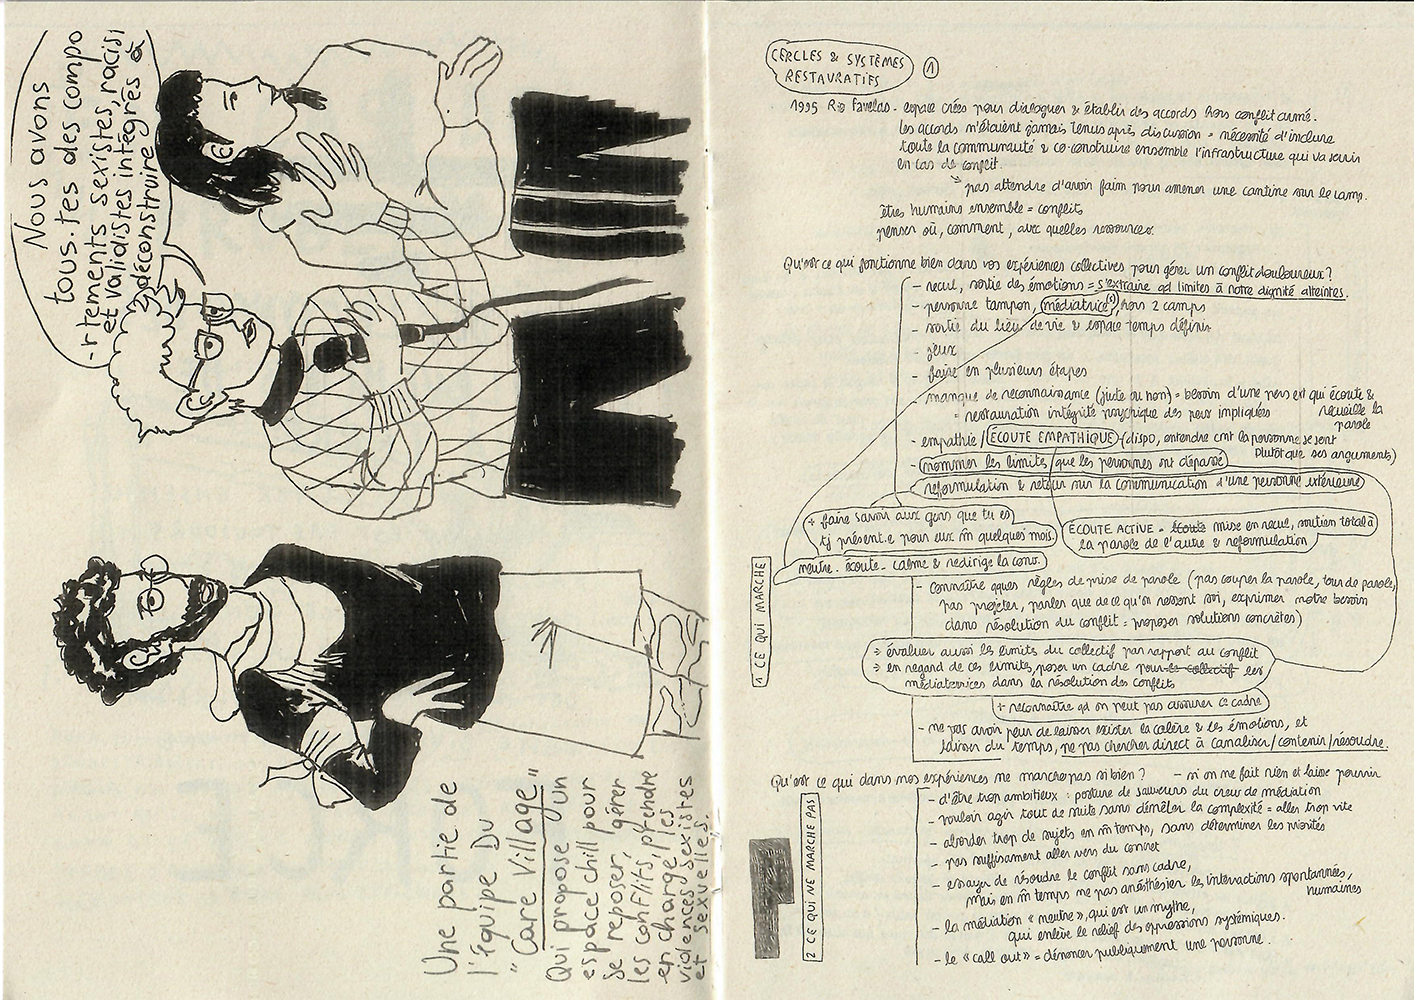 Nous avons
tous.tes des compo
-rtements sexistes, racist
et validistes intégrés à
déconstruire
Une partie de
l'équipe Du
"Care Village"
Qui propose un
espace chill pour
se reposer, gérer
les conflits, prendre
en charge les
violences sexistes
et sexuelles.
CERCLES & SYSTÈMES
RESTAURATIFS
1
1995 Rio Favelas - espace créés pour dialoguer & établir des accords hors conflit armé.
Les accords n'étaient jamais tenus après discussion = nécessité d'inclure
toute la communauté & co-construire ensemble l'infrastructure qui va servir
en cas de conflit.
pas attendre d'avoir faim pour amener une cantine sur le camp.
êtres humains ensemble = conflits
penser où, comment, avec quelles ressources.
Qu'est ce qui fonctionne bien dans vos expériences collectives pour gérer un conflit douloureux ?
- recul, sortie des émotions = s'extraire qd limites à notre dignité atteintes.
- personne tampon, médiatrice(s), hors 2 camps
- sortie du lieu de vie & espace temps définis
- jeux
- faire en plusieurs étapes
- manque de reconnaissance (juste ou non) = besoin d'une pers ext qui écoute &
recueille la
parole
= restauration intégrité psychique des pers impliquées
- empathie / ÉCOUTE EMPATHIQUE (dispo, entendre cmt la personne se sent
plutôt que ses arguments)
- nommer les limites que les personnes ont dépassé
reformulation & retour sur la communication d'une personne extérieure
+ faire savoir aux gens que tu es
tj présent.e pour eux m̂ quelques mois.
ÉCOUTE ACTIVE = écoute mise en recul, soutien total à
la parole de l'autre & reformulation
neutre - écoute - calme & redirige la conv.
1 CE QUI MARCHE
- connaître qques règles de prise de parole (pas couper la parole, tour de parole,
pas projeter, parler que de ce qu'on ressent soi, exprimer notre besoin
dans résolution du conflit = proposer solutions concrètes)
→ évaluer aussi les limites du collectif par rapport au conflit
→ en regard de ces limites, poser un cadre pour le collectif les
médiateurices dans la résolution des conflits
+ reconnaître qd on peut pas assurer ce cadre
- ne pas avoir peur de laisser exister la colère & les émotions, et
laisser du temps, ne pas chercher direct à canaliser/contenir/résoudre.
Qu'est ce qui dans nos expériences ne marche pas si bien ? - si on ne fait rien et laisse pourrir
2 CE QUI NE MARCHE PAS
- d'être trop ambitieux : posture de sauveurs du crew de médiation
- vouloir agir tout de suite sans démêler la complexité = aller trop vite
- aborder trop de sujets en m̂ temps, sans déterminer les priorités
- pas suffisament aller vers du concret
- essayer de résoudre le conflit sans cadre,
mais en m̂ temps ne pas anésthésier les interactions spontannées,
humaines
- la médiation « neutre », qui est un mythe,
qui enlève le relief des oppressions systémiques.
- le « call out » = dénoncer publiquement une personne.